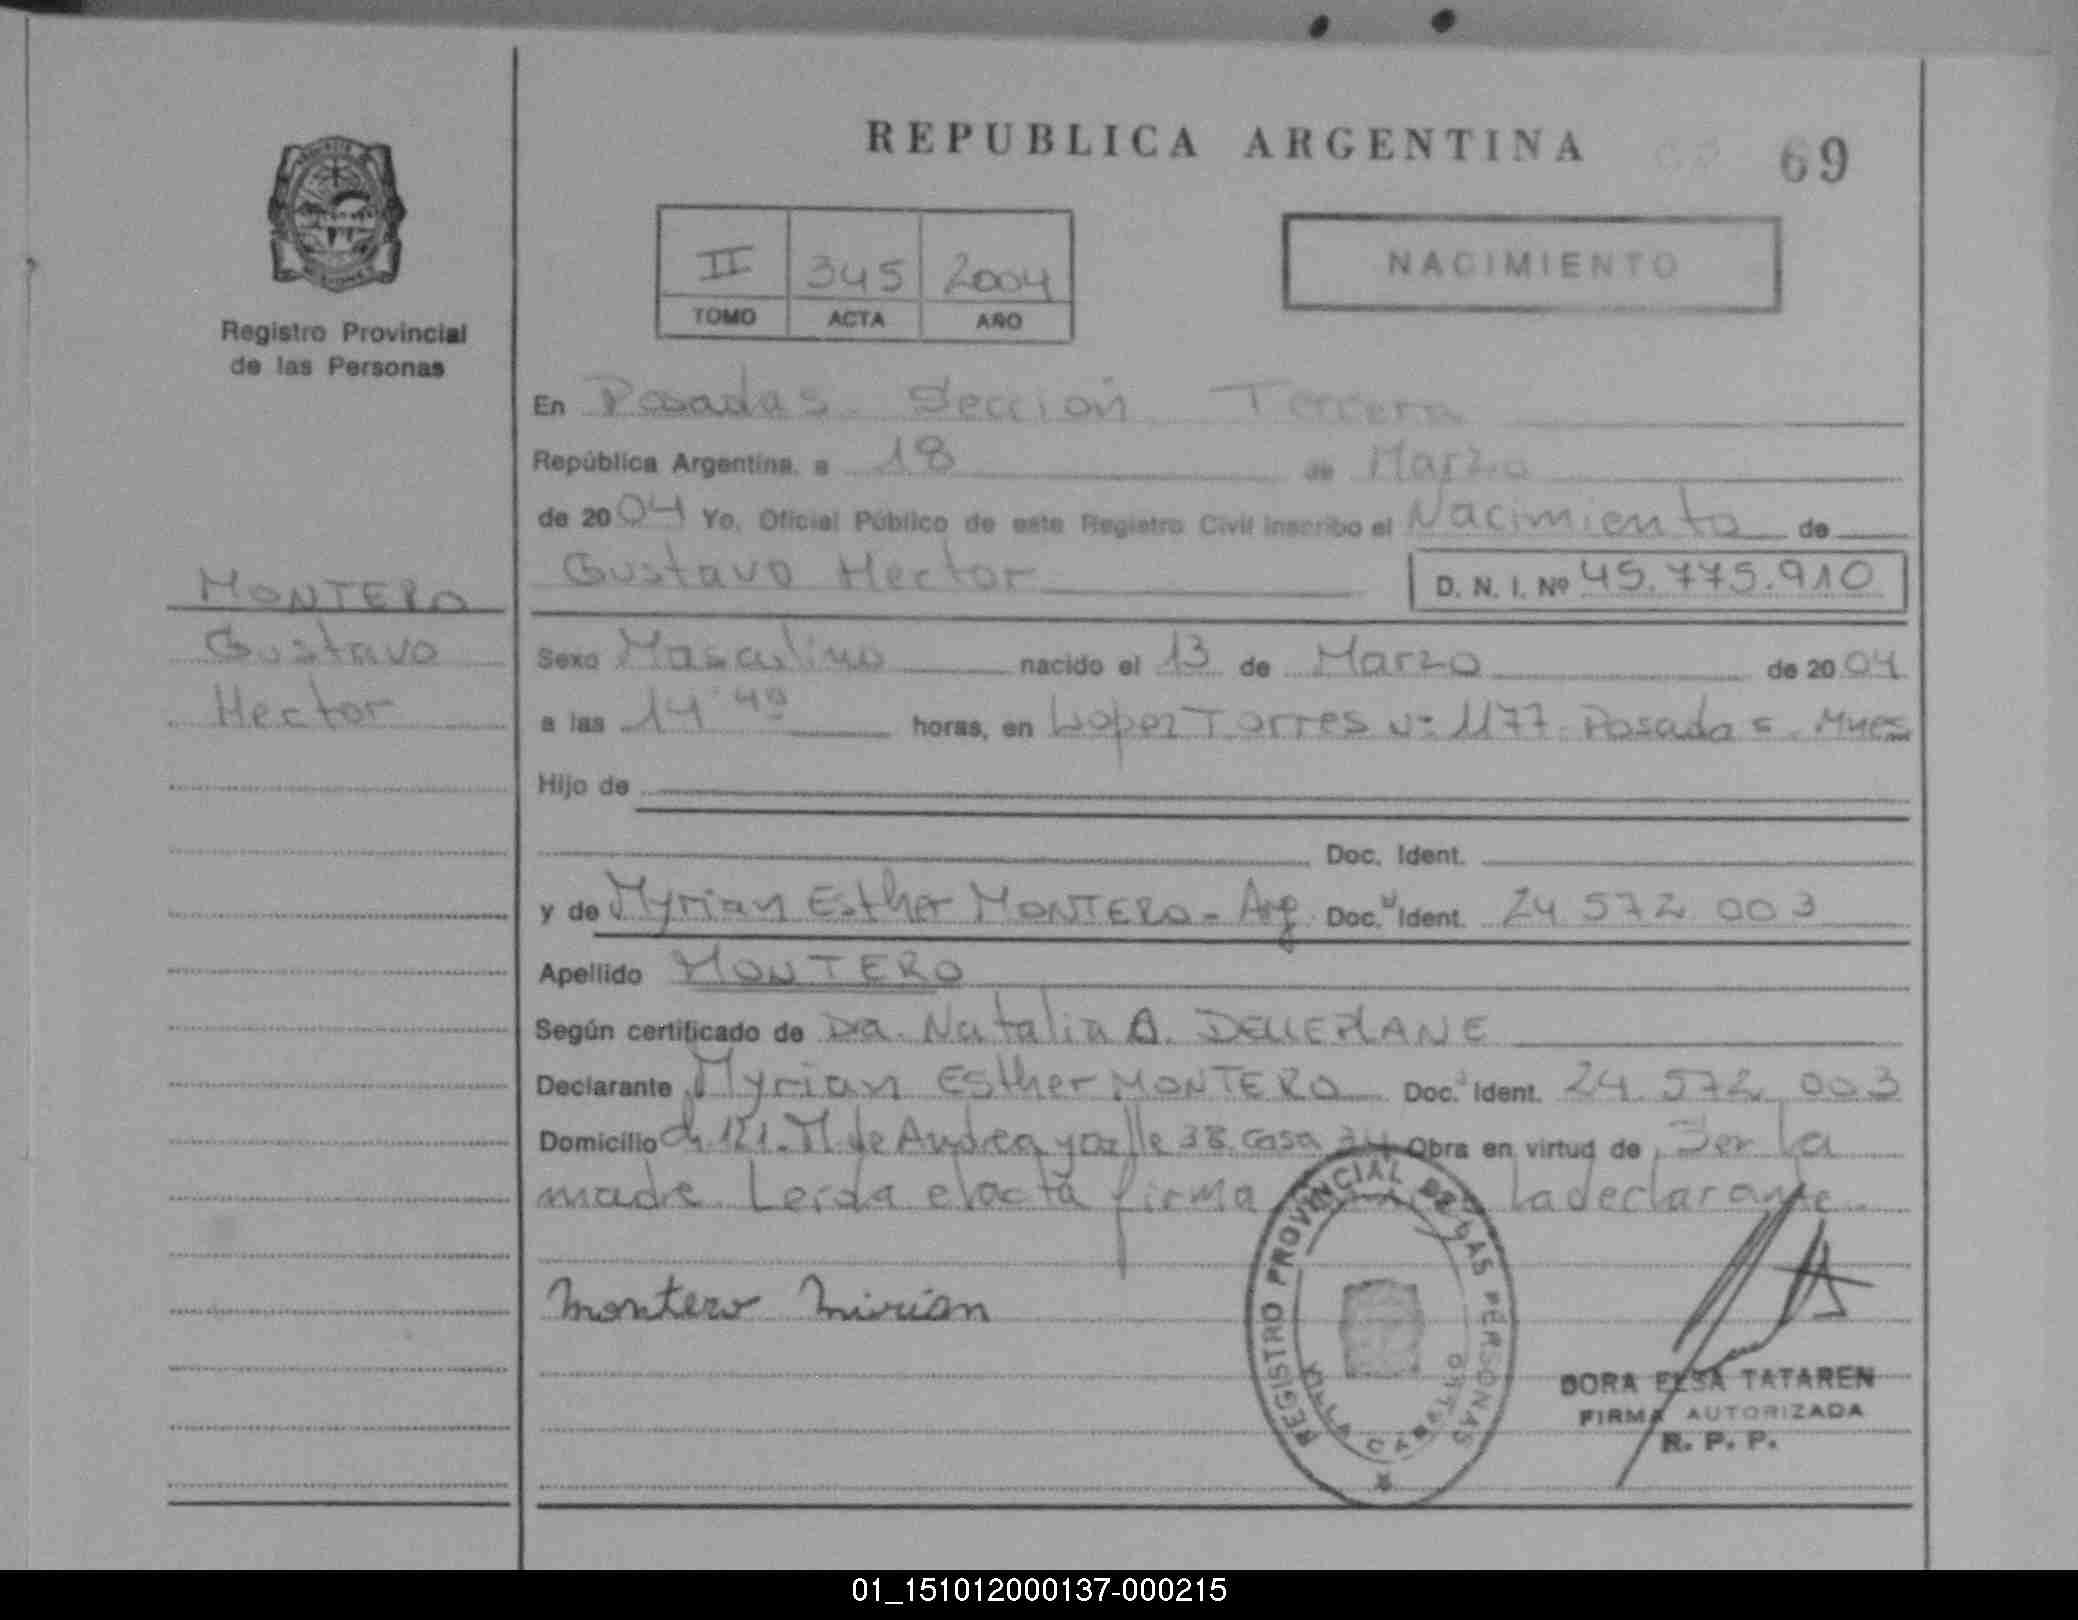 REPUBLICA ARGENTINA
69
II 345 2004
TOMO ACTA AÑO
NACIMIENTO
Registro Provincial
de las Personas
En Posadas. Sección Tercera
República Argentina, a 18 de Marzo
de 2004 Yo, Oficial Público de este Registro Civil inscribo el Nacimiento de
Gustavo Hector D. N. I. Nº 45.775.910
MONTERO
Gustavo
Hector
Sexo Masculino nacido el 13 de Marzo de 2004
a las 14 40 horas, en Lopez Torres Nº 1177. Posadas. Mnes
Hijo de
Doc. Ident.
y de Myrian Esther MONTERO - Arg. Doc. Ident. 24 572 003
Apellido MONTERO
Según certificado de Dra. Natalia A. DELLEPIANE
Declarante Myrian Esther MONTERO Doc. Ident. 24. 572 003
Domicilio ch 121. M. de Andrea y calle 38 casa 34 Obra en virtud de Ser la
madre Leida el acta firma la declarante.
Montero Mirian
REGISTRO PROVINCIAL DE LAS PERSONAS
VILLA CABELLO
DORA ELSA TATAREN
FIRMA AUTORIZADA
R. P. P.
01_151012000137-000215